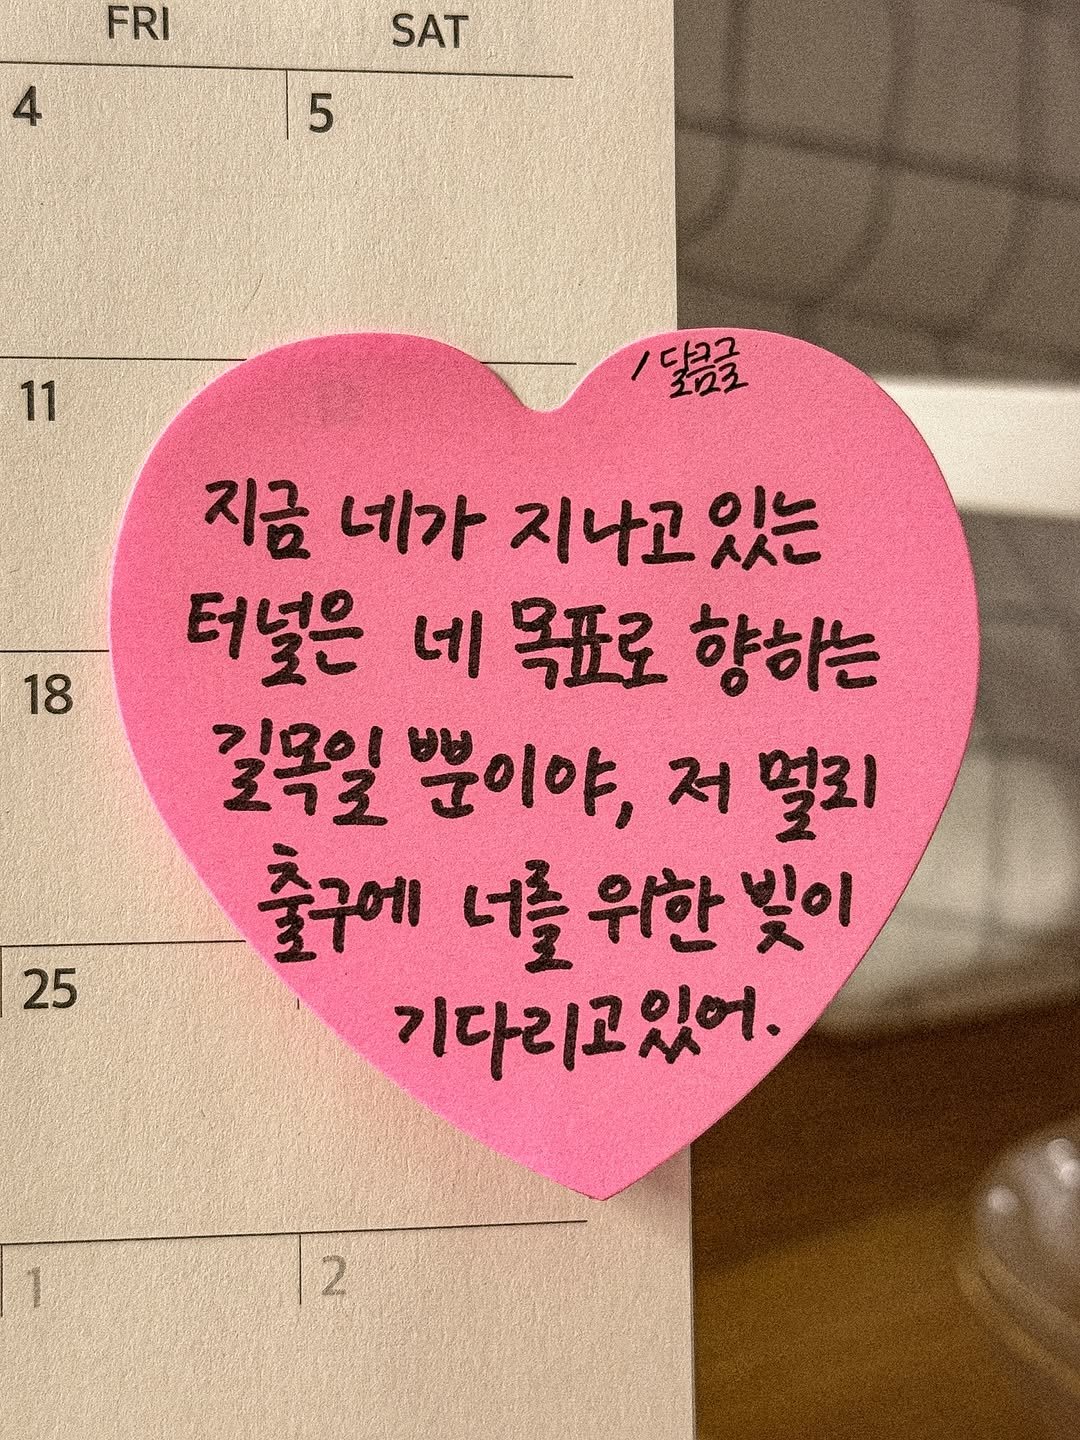 FRI SAT
4 5
/달콤글
11
지금 네가 지나고 있는
터널은 네 목표로 향하는
18
길목일 뿐이야, 저 멀리
출구에 너를 위한 빛이
25
기다리고 있어.
1 2